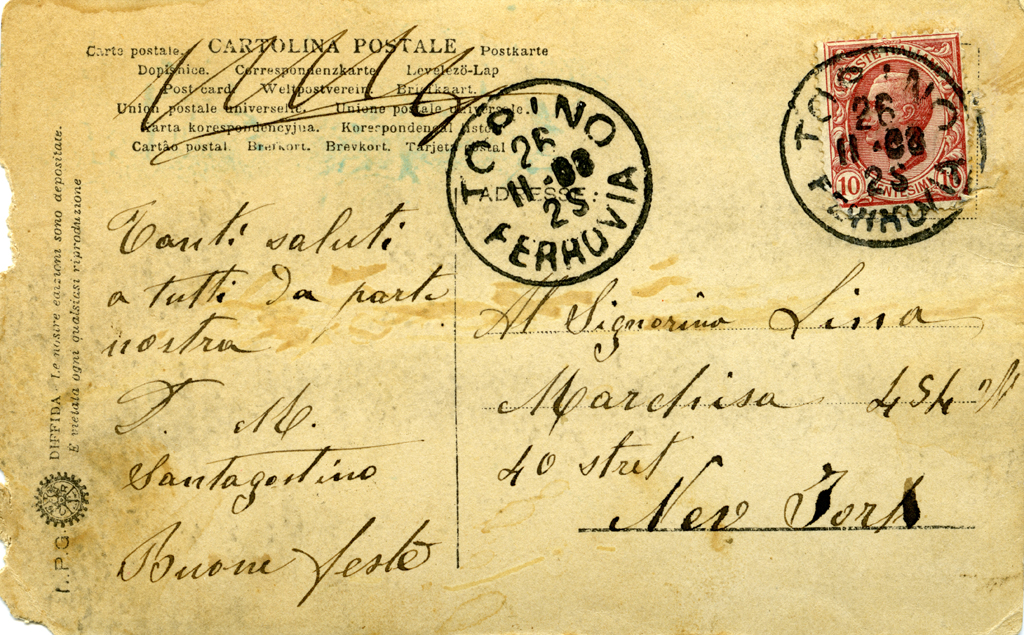 CARTOLINA POSTALE
Carte postale. Postkarte
Dopisnice. Correspondenzkarte Levelező-Lap
Post card. Weltpostverein. Briefkaart.
Union postale universelle. Unione postale universale.
Karta korespondencyjna. Korespondencni listek
Cartão postal. Brefkort. Brevkort. Tarjeta postal
ADRESSE:
TORINO
26
11-08
2S
FERROVIA
POSTE ITALIANE
10 CENTESIMI 10
TORINO
26
11-08
2S
FERROVIA
Tanti saluti
a tutti da parte
nostra
D. M.
Santagostino
Buone feste
Al Signorino Lina
Marchisa 454
40 stret
New York
DIFFIDA - Le nostre edizioni sono depositate.
E vietata ogni qualsiasi riproduzione
I.P.G.